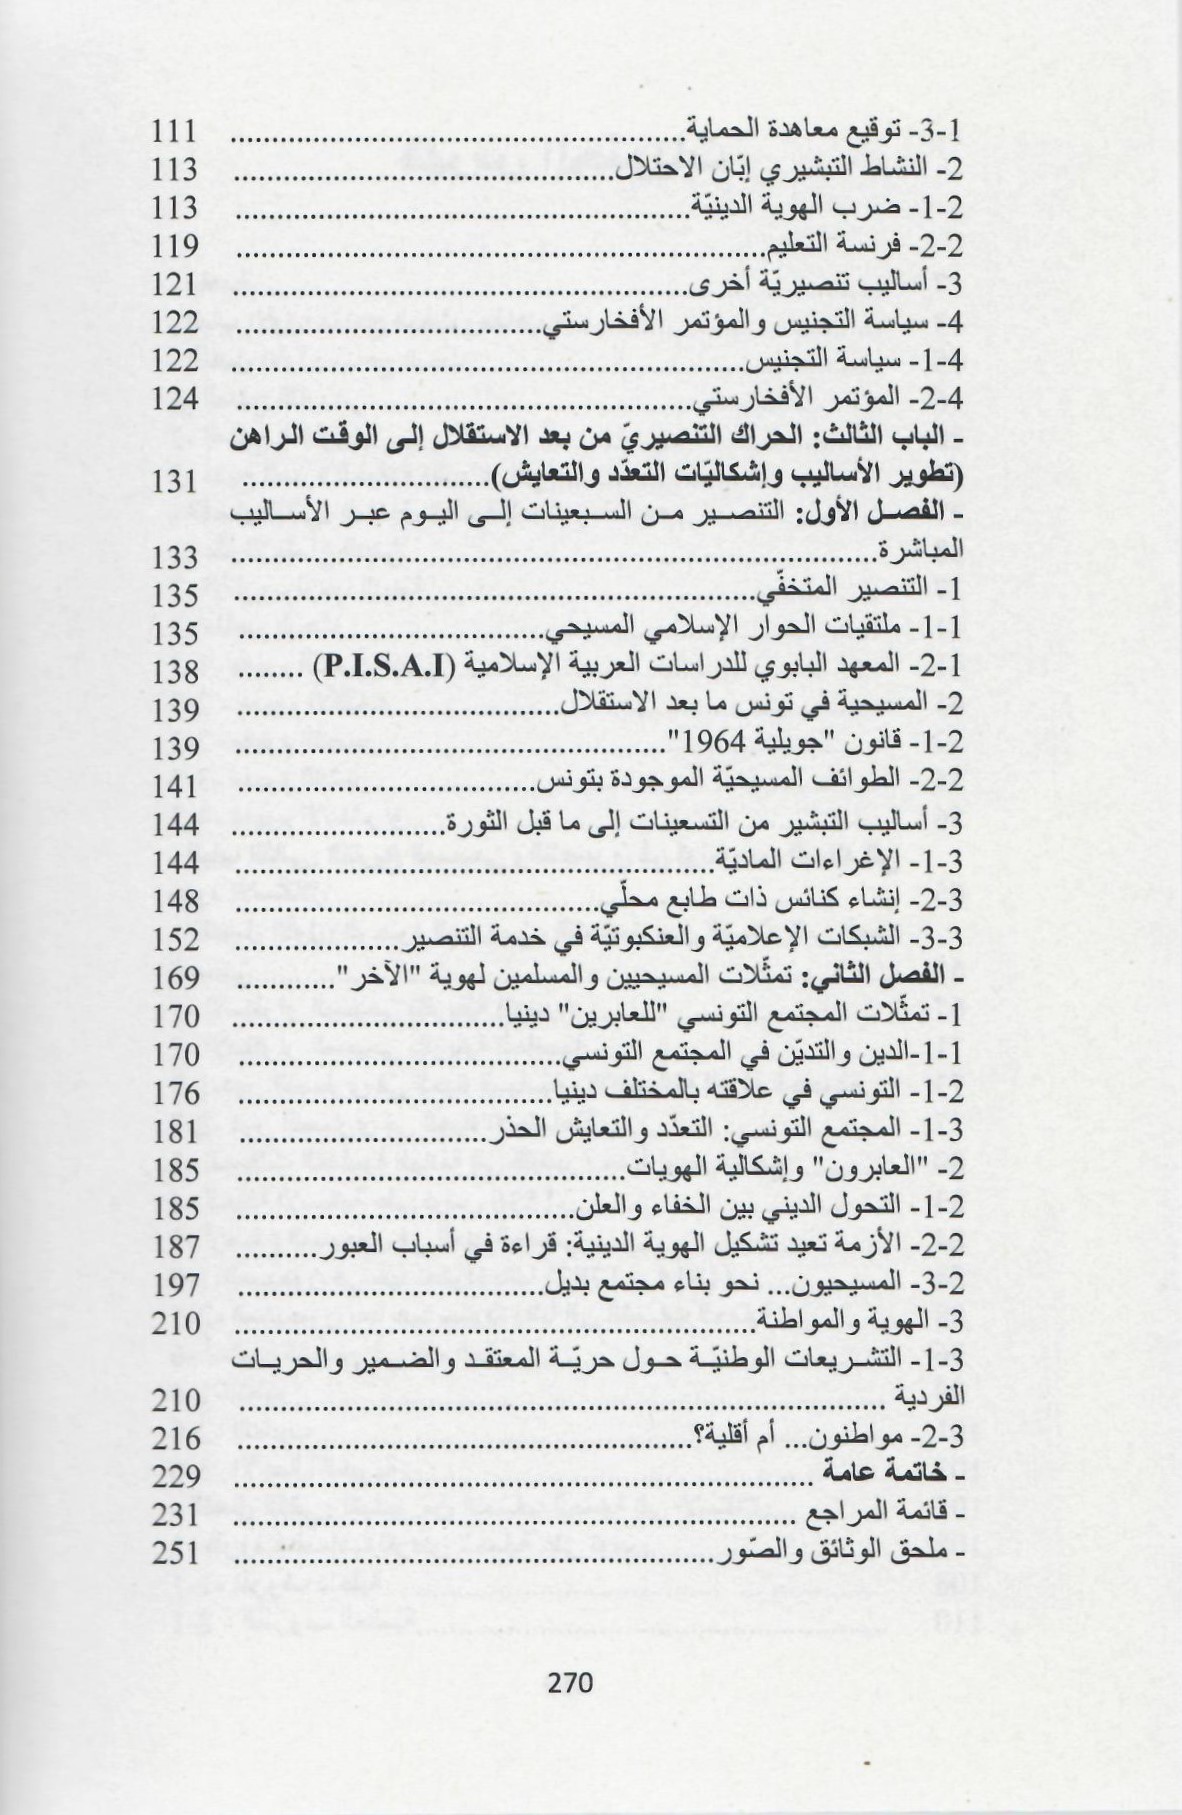 1-3- توقيع معاهدة الحماية.......................................................... 111
2- النشاط التبشيري إبّان الاحتلال................................................ 113
2-1- ضرب الهوية الدينيّة.......................................................... 113
2-2- فرنسة التعليم................................................................... 119
3- أساليب تنصيريّة أخرى........................................................... 121
4- سياسة التجنيس والمؤتمر الأفخارستي....................................... 122
4-1- سياسة التجنيس................................................................. 122
4-2- المؤتمر الأفخارستي.......................................................... 124
- الباب الثالث: الحراك التنصيريّ من بعد الاستقلال إلى الوقت الراهن
(تطوير الأساليب وإشكاليّات التعدّد والتعايش)............................... 131
- الفصل الأول: التنصير من السبعينات إلى اليوم عبر الأساليب
المباشرة.................................................................................. 133
1- التنصير المتخفّي.................................................................. 135
1-1- ملتقيات الحوار الإسلامي المسيحي....................................... 135
1-2- المعهد البابوي للدراسات العربية الإسلامية (P.I.S.A.I) ........ 138
2- المسيحية في تونس ما بعد الاستقلال......................................... 139
2-1- قانون "جويلية 1964"...................................................... 139
2-2- الطوائف المسيحيّة الموجودة بتونس...................................... 141
3- أساليب التبشير من التسعينات إلى ما قبل الثورة........................... 144
3-1- الإغراءات الماديّة............................................................. 144
3-2- إنشاء كنائس ذات طابع محلّي.............................................. 148
3-3- الشبكات الإعلاميّة والعنكبوتيّة في خدمة التنصير..................... 152
- الفصل الثاني: تمثّلات المسيحيين والمسلمين لهوية "الآخر"............ 169
1- تمثّلات المجتمع التونسي "للعابرين" دينيا.................................. 170
1-1-الدين والتديّن في المجتمع التونسي......................................... 170
1-2- التونسي في علاقته بالمختلف دينيا........................................ 176
1-3- المجتمع التونسي: التعدّد والتعايش الحذر................................ 181
2- "العابرون" وإشكالية الهويات.................................................. 185
2-1- التحول الديني بين الخفاء والعلن........................................... 185
2-2- الأزمة تعيد تشكيل الهوية الدينية: قراءة في أسباب العبور.......... 187
2-3- المسيحيون... نحو بناء مجتمع بديل....................................... 197
3- الهوية والمواطنة.................................................................. 210
3-1- التشريعات الوطنيّة حول حريّة المعتقد والضمير والحريات
الفردية .................................................................................. 210
3-2- مواطنون... أم أقلية؟......................................................... 216
- خاتمة عامة ......................................................................... 229
- قائمة المراجع ....................................................................... 231
- ملحق الوثائق والصّور............................................................. 251
270